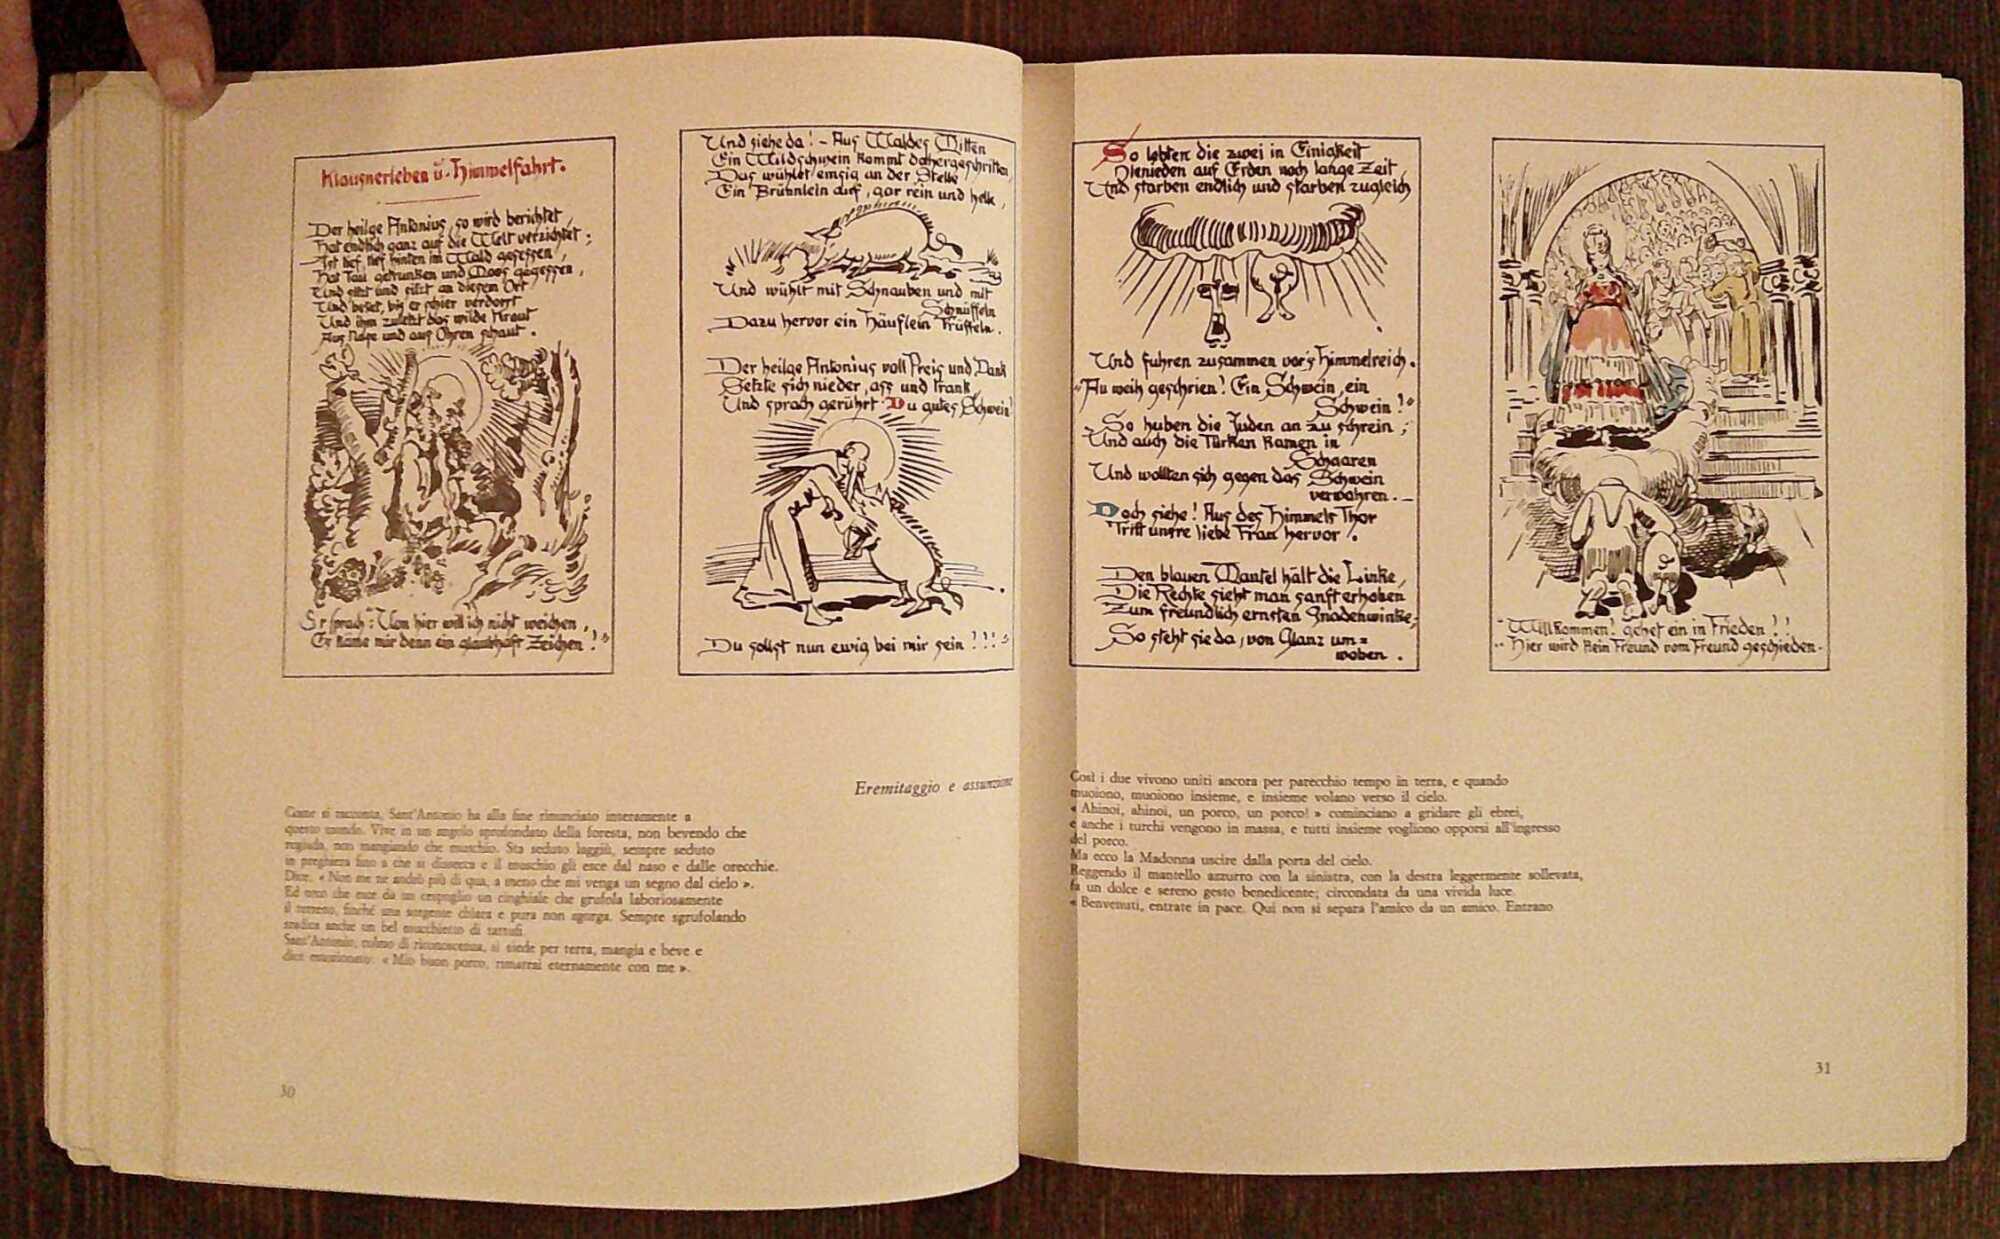 Klausnerleben u. Himmelfahrt.
Der heilge Antonius, so wird berichtet,
Hat endlich ganz auf die Welt verzichtet;
Ist tief, tief hinten im Wald gesessen,
Hat Tau getrunken und Moos gegessen,
Und sitzt und sitzt an diesem Ort
Und betet, bis er schier verdorrt
Und ihm zuletzt das wilde Kraut
Aus Nase und aus Ohren schaut.
Er sprach: "Von hier will ich nicht weichen,
Es käme mir denn ein glaubhaft Zeichen!"
Und siehe da! - Aus Waldes Mitten
Ein Wildschwein kommt dahergeschritten,
Das wühlet emsig an der Stelle
Ein Brünnlein auf, gar rein und helle,
Und wühlt mit Schnauben und mit
Schnüffeln
Dazu hervor ein Häuflein Trüffeln.
Der heilge Antonius voll Preis und Dank
Setzte sich nieder, ass und trank
Und sprach gerührt: Du gutes Schwein
Du sollst nun ewig bei mir sein!!!"
So lebten die zwei in Einigkeit
Hienieden auf Erden noch lange Zeit,
Und starben endlich und starben zugleich
Und fuhren zusammen vor's Himmelreich.
"Au weih geschrien! Ein Schwein, ein
Schwein!"
So huben die Juden an zu schrein;
Und auch die Türken kamen in
Schaaren
Und wollten sich gegen das Schwein
verwahren.—
Doch siehe! Aus des Himmels Thor
Tritt unsre liebe Frau hervor.
Den blauen Mantel hält die Linke,
Die Rechte sieht man sanft erhoben
Zum freundlich ernsten Gnadenwinke;
So steht sie da, von Glanz um=
woben.
"Willkommen! gehet ein in Frieden!!
Hier wird kein Freund vom Freund geschieden.
Eremitaggio e assunzione
Come si racconta, Sant'Antonio ha alla fine rinunciato interamente a
questo mondo. Vive in un angolo sprofondato della foresta, non bevendo che
rugiada, non mangiando che muschio. Sta seduto laggiù, sempre seduto
in preghiera fino a che si dissecca e il muschio gli esce dal naso e dalle orecchie.
Dice: « Non me ne andrò più di qua, a meno che mi venga un segno dal cielo ».
Ed ecco che esce da un cespuglio un cinghiale che grufola laboriosamente
il terreno, finché una sorgente chiara e pura non sgorga. Sempre sgrufolando
sradica anche un bel mucchietto di tartufi.
Sant'Antonio, colmo di riconoscenza, si siede per terra, mangia e beve e
dice emozionato: « Mio buon porco, rimarrai eternamente con me ».
30
Così i due vivono uniti ancora per parecchio tempo in terra, e quando
muoiono, muoiono insieme, e insieme volano verso il cielo.
« Ahinoi, ahinoi, un porco, un porco! » cominciano a gridare gli ebrei,
e anche i turchi vengono in massa, e tutti insieme vogliono opporsi all'ingresso
del porco.
Ma ecco la Madonna uscire dalla porta del cielo.
Reggendo il mantello azzurro con la sinistra, con la destra leggermente sollevata,
fa un dolce e sereno gesto benedicente; circondata da una vivida luce.
« Benvenuti, entrate in pace. Qui non si separa l'amico da un amico. Entrano
31